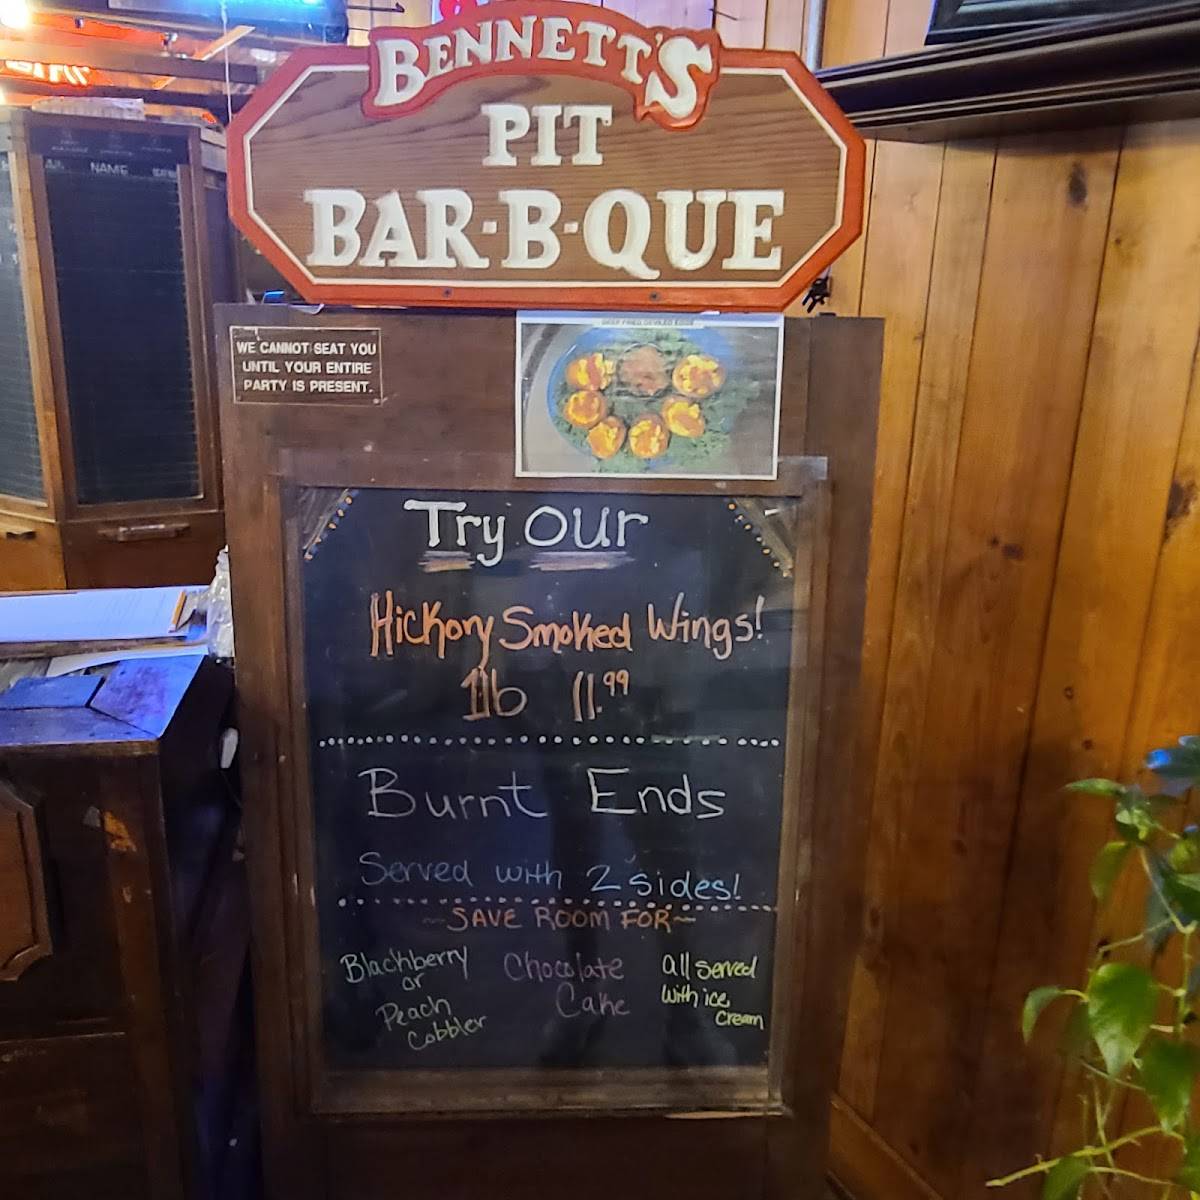 BENNETT'S
PIT
BAR-B-QUE
NAME
WE CANNOT SEAT YOU
UNTIL YOUR ENTIRE
PARTY IS PRESENT.
DEEP FRIED DEVILED EGGS
Try our
Hickory Smoked Wings!
1lb 11.99
Burnt Ends
Served with 2 sides!
~SAVE ROOM FOR~
Blackberry
or
Peach
Cobbler
Chocolate
Cake
all served
with ice
cream